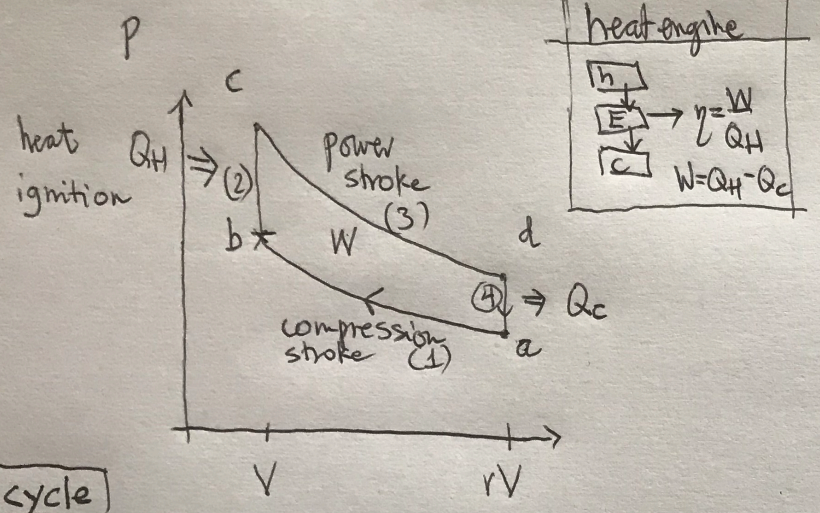 P
heat engine
h
E → η = W/Q_H
C
W = Q_H - Q_C
c
heat
ignition
Q_H ⇒
(2)
power
stroke
(3)
b
W
d
(4) ⇒ Q_C
compression
stroke (1)
a
V
rV
cycle